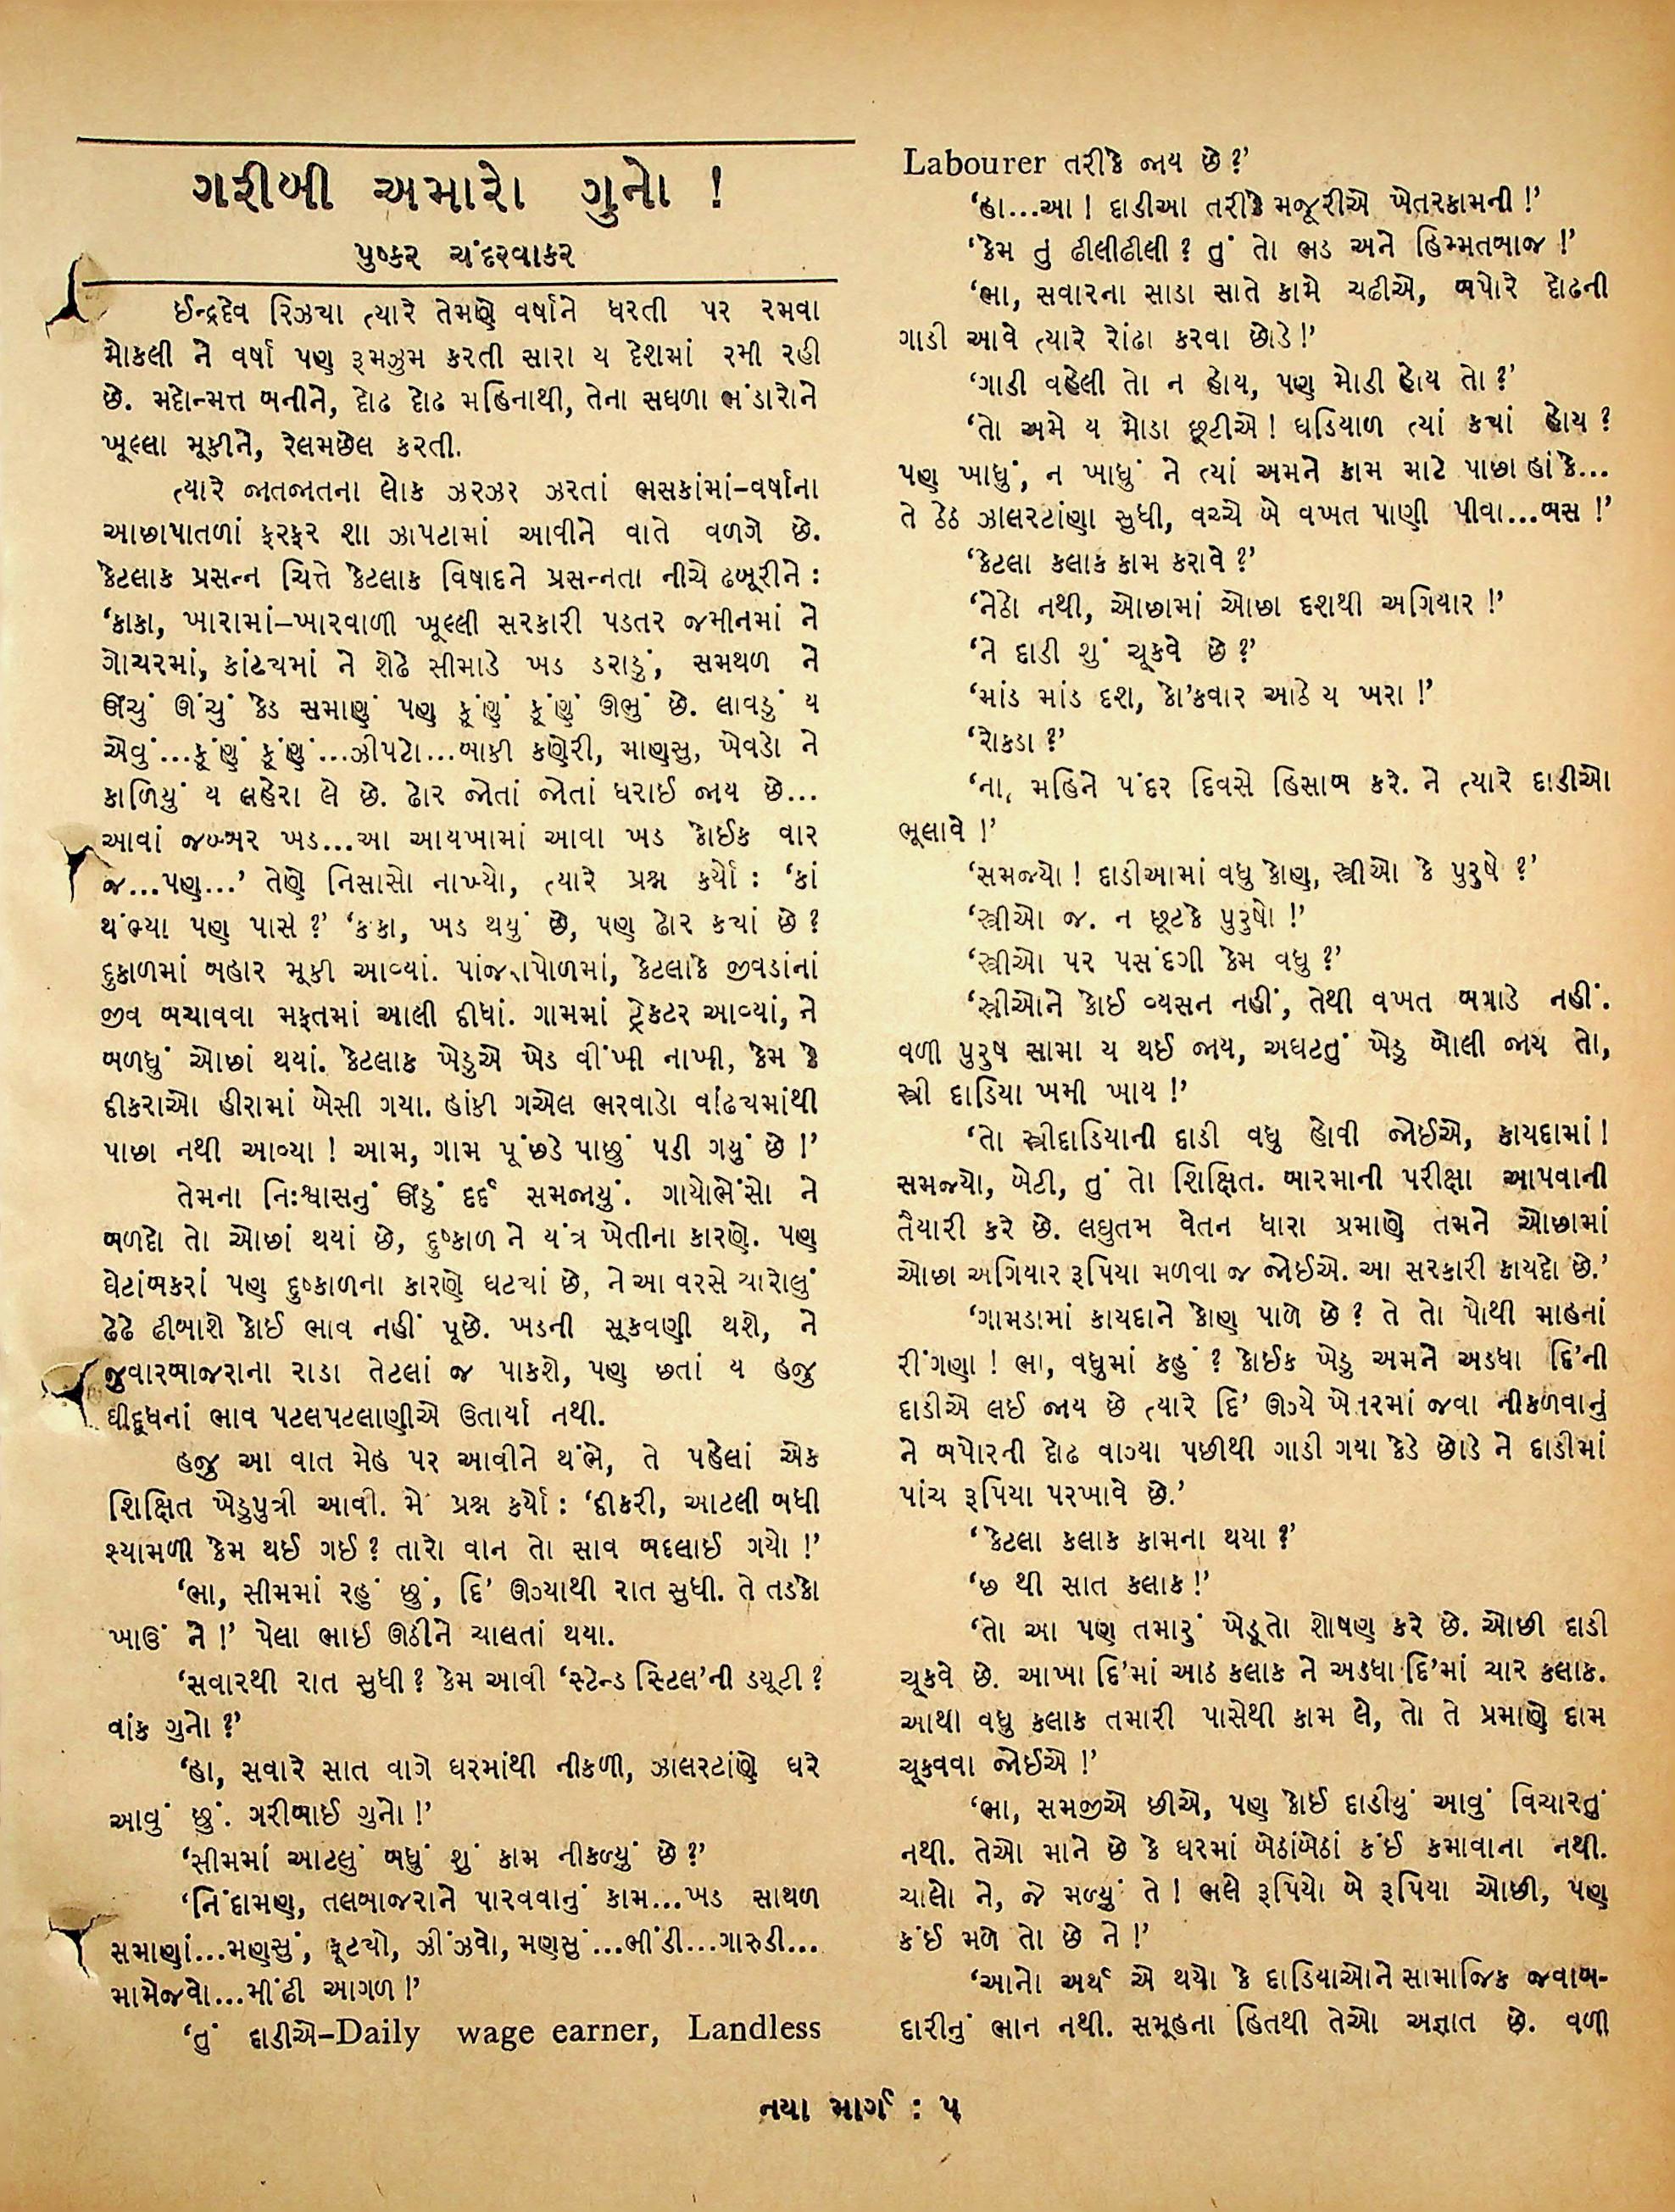 ગરીબી અમારો ગુનો !
પુષ્કર ચંદરવાકર
ઈન્દ્રદેવ રિઝ્યા ત્યારે તેમણે વર્ષાને ધરતી પર રમવા
મોકલી ને વર્ષા પણ રૂમઝુમ કરતી સારા ય દેશમાં રમી રહી
છે. મદોન્મત્ત બનીને, દોઢ દોઢ મહિનાથી, તેના સઘળા ભંડારોને
ખૂલ્લા મૂકીને, રેલમછેલ કરતી.
ત્યારે જાતજાતના લોક ઝરઝર ઝરતાં ભસકાંમાં–વર્ષાના
આછાપાતળાં ફરફર શા ઝાપટામાં આવીને વાતે વળગે છે.
કેટલાક પ્રસન્ન ચિત્તે કેટલાક વિષાદને પ્રસન્નતા નીચે ઢબૂરીને :
‘કાકા, ખારામાં–ખારવાળી ખૂલ્લી સરકારી પડતર જમીનમાં ને
ગોચરમાં, કાંટ્યમાં ને શેઢે સીમાડે ખડ ડરાડું, સમથળ ને
ઊંચું ઊંચું કેડ સમાણું પણ કૂંણું કૂંણું ઊભું છે. લાવડું ય
એવું...કૂંણું કૂંણું...ઝીપટો...બાકી કણેરી, માણસુ, ખેવડો ને
કાળિયું ય લહેરા લે છે. ઢોર જોતાં જોતાં ધરાઈ જાય છે...
આવાં જબ્બર ખડ...આ આયખામાં આવા ખડ કોઈક વાર
જ...પણ...’ તેણે નિસાસો નાખ્યો, ત્યારે પ્રશ્ન કર્યો : ‘કાં
થંભ્યા પણ પાસે ?’ ‘કાકા, ખડ થયું છે, પણ ઢોર ક્યાં છે ?
દુકાળમાં બહાર મૂકી આવ્યાં. પાંજરાપોળમાં, કેટલાકે જીવડાંનાં
જીવ બચાવવા મફતમાં આલી દીધાં. ગામમાં ટ્રેકટર આવ્યાં, ને
બળધું ઓછાં થયાં. કેટલાક ખેડુએ ખેડ વીંખી નાખી, કેમ કે
દીકરાઓ હીરામાં બેસી ગયા. હાંકી ગએલ ભરવાડો વાંઢ્યમાંથી
પાછા નથી આવ્યા ! આમ, ગામ પૂંછડે પાછું પડી ગયું છે !’
તેમના નિઃશ્વાસનું ઊંડું દર્દ સમજાયું. ગાયોભેંસો ને
બળદો તો ઓછાં થયાં છે, દુષ્કાળ ને યંત્ર ખેતીના કારણે. પણ
ઘેટાંબકરાં પણ દુષ્કાળના કારણે ઘટ્યાં છે, ને આ વરસે ચારોલું
ઢેઢે ઢીબાશે કોઈ ભાવ નહીં પૂછે. ખડની સૂકવણી થશે, ને
જુવારબાજરાના રાડા તેટલાં જ પાકશે, પણ છતાં ય હજુ
ઘીદૂધનાં ભાવ પટલપટલાણીએ ઉતાર્યા નથી.
હજુ આ વાત મેહ પર આવીને થંભે, તે પહેલાં એક
શિક્ષિત ખેડુપુત્રી આવી. મેં પ્રશ્ન કર્યો : ‘દીકરી, આટલી બધી
શ્યામળી કેમ થઈ ગઈ ? તારો વાન તો સાવ બદલાઈ ગયો !’
‘ભા, સીમમાં રહું છું, દિ’ ઊગ્યાથી રાત સુધી. તે તડકો
ખાઉં ને !’ પેલા ભાઈ ઊઠીને ચાલતાં થયા.
‘સવારથી રાત સુધી ? કેમ આવી ‘સ્ટેન્ડ સ્ટિલ’ની ડ્યૂટી ?
વાંક ગુનો ?’
‘હા, સવારે સાત વાગે ઘરમાંથી નીકળી, ઝાલરટાંણે ઘરે
આવું છું. ગરીબાઈ ગુનો !’
‘સીમમાં આટલું બધું શું કામ નીકળ્યું છે ?’
‘નિંદામણ, તલબાજરાને પારવવાનું કામ...ખડ સાથળ
સમાણાં...મણસું, કૂટચો, ઝીંઝવો, મણસું...ભીંડી...ગારુડી...
મામેજવો...મીંઢી આગળ !’
‘તું દાડીએ–Daily wage earner, Landless
Labourer તરીકે જાય છે ?’
‘હા...આ ! દાડીઆ તરીકે મજૂરીએ ખેતરકામની !’
‘કેમ તુ ઢીલીઢીલી ? તું તો ભડ અને હિમ્મતબાજ !’
‘ભા, સવારના સાડા સાતે કામે ચઢીએ, બપોરે દોઢની
ગાડી આવે ત્યારે રોંઢા કરવા છોડે !’
‘ગાડી વહેલી તો ન હોય, પણ મોડી હોય તો ?’
‘તો અમે ય મોડા છૂટીએ ! ઘડિયાળ ત્યાં ક્યાં હોય ?
પણ ખાધું, ન ખાધું ને ત્યાં અમને કામ માટે પાછા હાંકે...
તે ઠેઠ ઝાલરટાંણા સુધી, વચ્ચે બે વખત પાણી પીવા...બસ !’
‘કેટલા કલાક કામ કરાવે ?’
‘નેઠો નથી, ઓછામાં ઓછા દશથી અગિયાર !’
‘ને દાડી શું ચૂકવે છે ?’
‘માંડ માંડ દશ, કો’કવાર આઠે ય ખરા !’
‘રોકડા ?’
‘ના, મહિને પંદર દિવસે હિસાબ કરે. ને ત્યારે દાડીઓ
ભૂલાવે !’
‘સમજ્યો ! દાડીઆમાં વધુ કોણ, સ્ત્રીઓ કે પુરુષે ?’
‘સ્ત્રીઓ જ. ન છૂટકે પુરુષો !’
‘સ્ત્રીઓ પર પસંદગી કેમ વધુ ?’
‘સ્ત્રીઓને કોઈ વ્યસન નહીં, તેથી વખત બગાડે નહીં.
વળી પુરુષ સામા ય થઈ જાય, અઘટતું ખેડુ બોલી જાય તો,
સ્ત્રી દાડિયા ખમી ખાય !’
‘તો સ્ત્રીદાડિયાની દાડી વધુ હોવી જોઈએ, કાયદામાં !
સમજ્યો, બેટી, તું તો શિક્ષિત. બારમાની પરીક્ષા આપવાની
તૈયારી કરે છે. લઘુતમ વેતન ધારા પ્રમાણે તમને ઓછામાં
ઓછા અગિયાર રૂપિયા મળવા જ જોઈએ. આ સરકારી કાયદો છે.’
‘ગામડામાં કાયદાને કોણ પાળે છે ? તે તો પોથી માહનાં
રીંગણા ! ભા, વધુમાં કહું ? કોઈક ખેડુ અમને અડધા દિ’ની
દાડીએ લઈ જાય છે ત્યારે દિ’ ઊગ્યે ખેતરમાં જવા નીકળવાનું
ને બપોરની દોઢ વાગ્યા પછીથી ગાડી ગયા કેડે છોડે ને દાડીમાં
પાંચ રૂપિયા પરખાવે છે.’
‘કેટલા કલાક કામના થયા ?’
‘છ થી સાત કલાક !’
‘તો આ પણ તમારું ખેડૂતો શોષણ કરે છે. ઓછી દાડી
ચૂકવે છે. આખા દિ’માં આઠ કલાક ને અડધા દિ’માં ચાર કલાક.
આથી વધુ કલાક તમારી પાસેથી કામ લે, તો તે પ્રમાણે દામ
ચૂકવવા જોઈએ !’
‘ભા, સમજીએ છીએ, પણ કોઈ દાડીયું આવું વિચારતું
નથી. તેઓ માને છે કે ઘરમાં બેઠાંબેઠાં કંઈ કમાવાના નથી.
ચાલો ને, જે મળ્યું તે ! ભલે રૂપિયો બે રૂપિયા ઓછી, પણ
કંઈ મળે તો છે ને !’
‘આનો અર્થ એ થયો કે દાડિયાઓને સામાજિક જવાબ-
દારીનું ભાન નથી. સમૂહના હિતથી તેઓ અજ્ઞાત છે. વળી
નયા માર્ગ : ૫